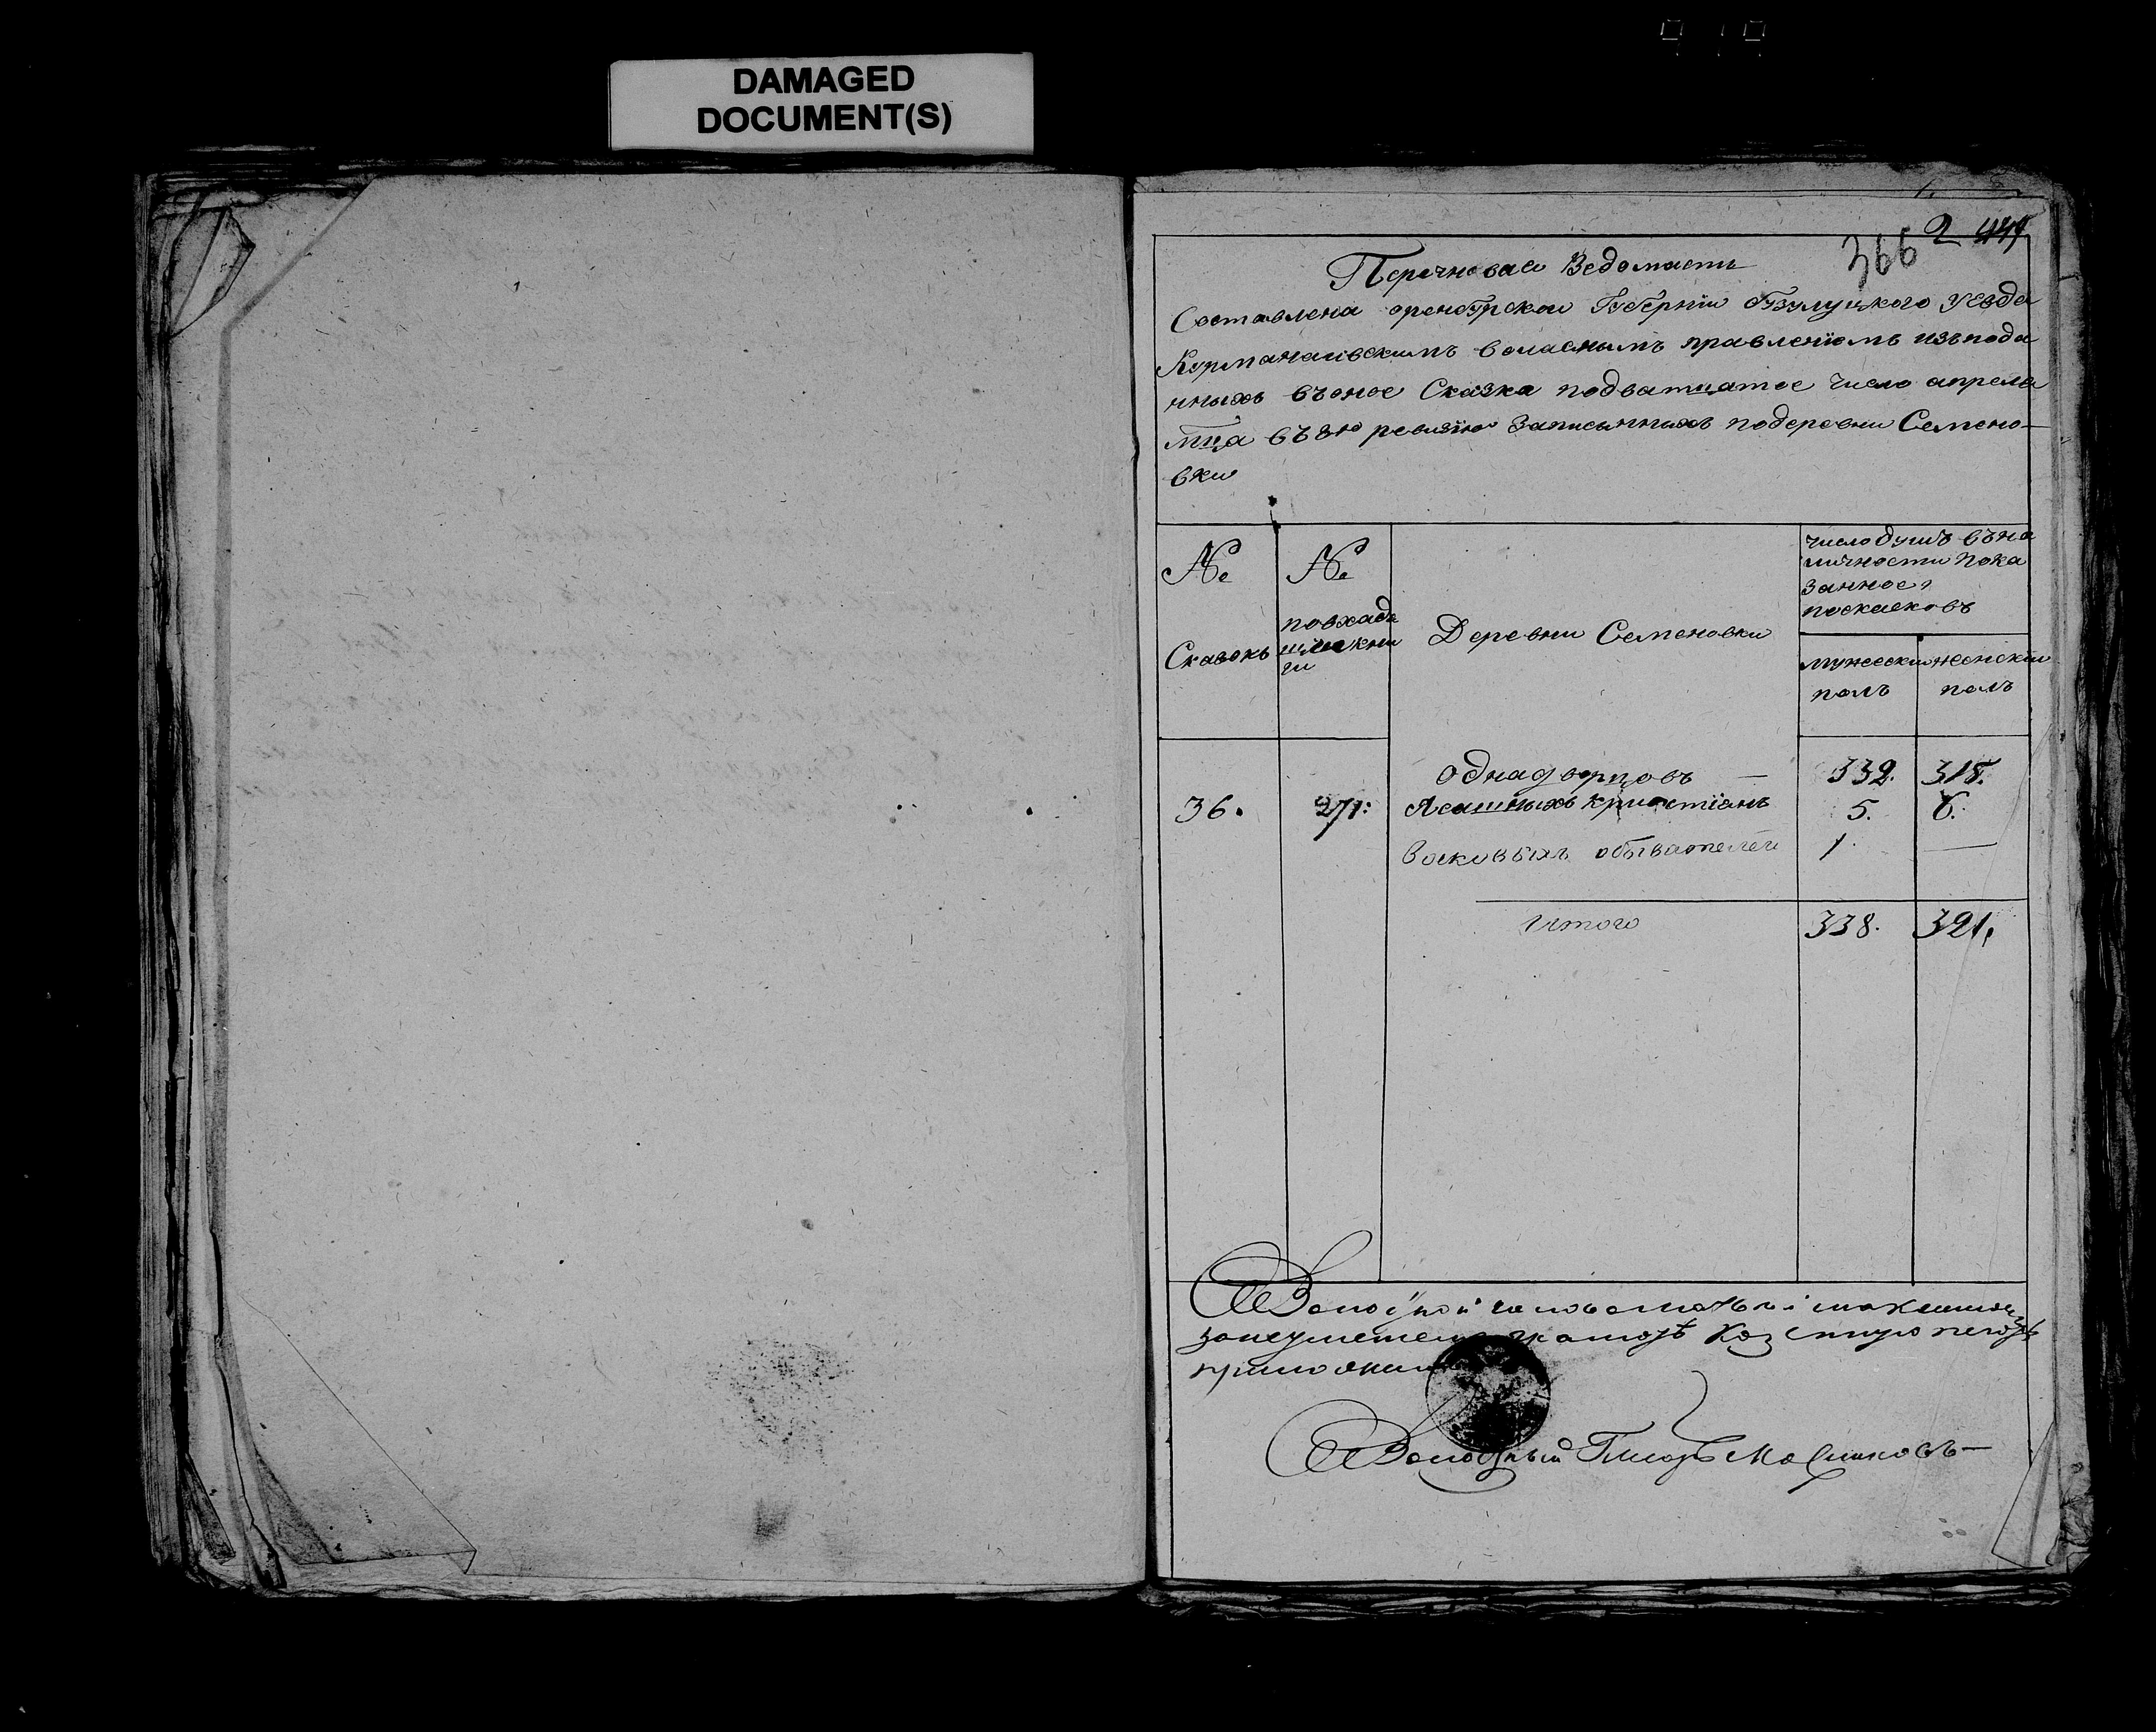 DAMAGED
DOCUMENT(S)
366 2
Перечневая Ведомасть
Составлена оренбурской Губерніи бузулуцкого уезда
Курманаивскимъ воласнымъ правленіемъ изъ пода
нныхъ въоное Сказка подватцатое число апреля
мца въ 8ю ревизію записанныхъ подеревни Семено-
вки
№ Сказокъ
№ повхадя щмекни ги
Деревни Семеновки
число душъ въна
личности пока
занное
поскасковъ
мужески полъ
женскии полъ
однадворцовъ — 332. 315.
36. 271: Ясашныхъ криостіянъ 5. 6.
воисковыхъ обывателеи 1. —
Итого 338. 321.
Волосной голова
занеуметем грамотѣ казенную печать
приложилъ
Волосный Писарь Маслиновъ